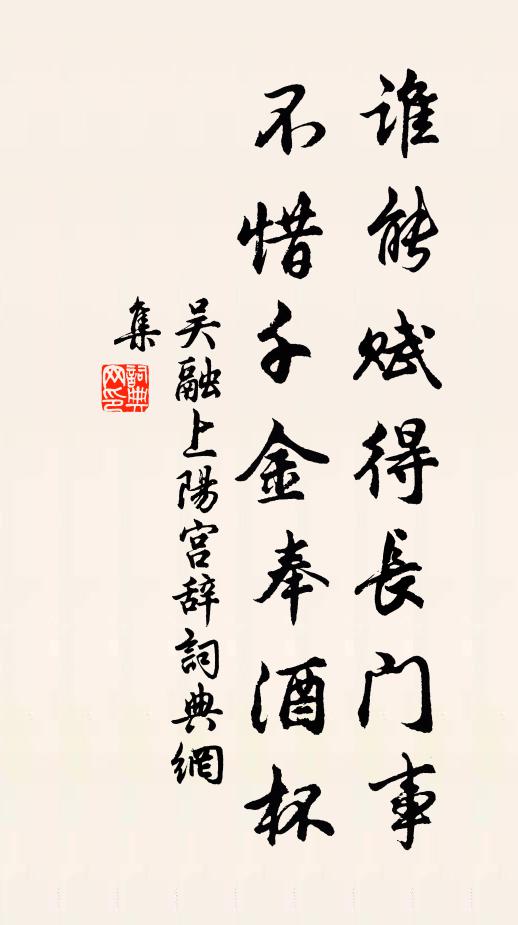 谁能赋得長门事
不惜千金奉酒杯
吴融上陽宫辞詞典網
集
詞典网印